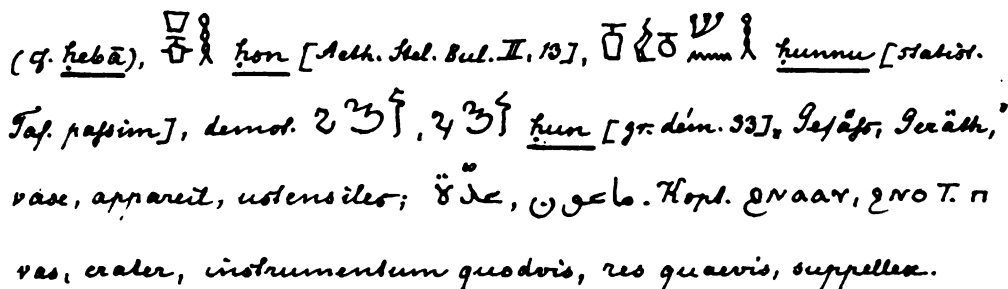 (cf. ḥebā), ḥon [Aeth. Stel. Bul. II, 13], ḥunnu [Statist.
Taf. passim], demot. ḥun [gr. dém. 33] „Gefäss, Geräth,"
vase, appareil, ustensiles; عدّة, ماعون. Kopt. ϩⲛⲁⲁⲩ, ϩⲛⲟ T. ⲡ
vas, crater, instrumentum quodvis, res quaevis, suppellex.